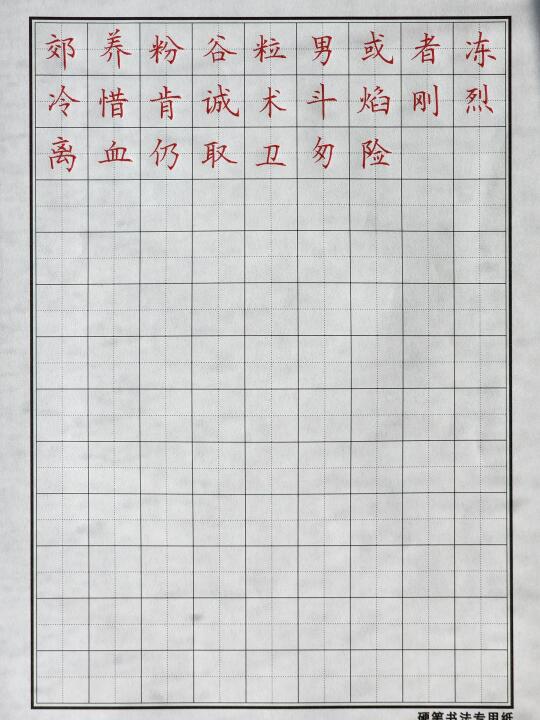 郊养粉谷粒男或者冻
冷惜肯诚术斗焰刚烈
离血仍取卫匆险
硬笔书法专用纸